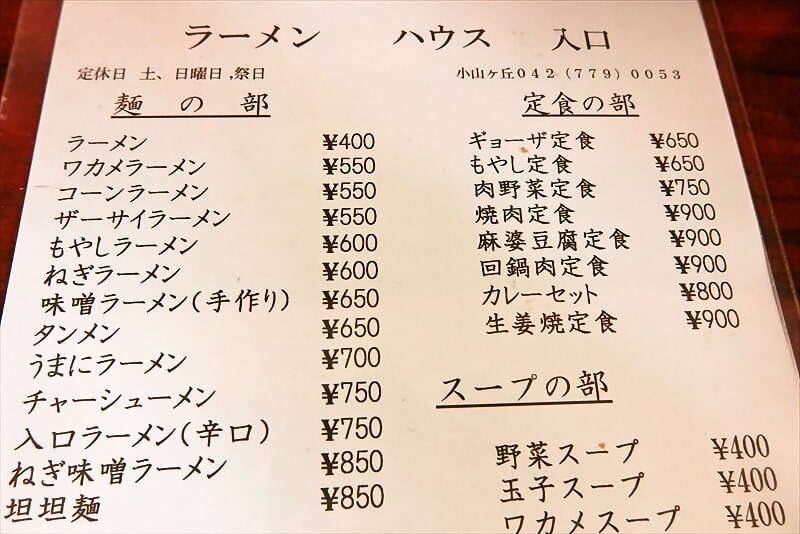 ラーメン ハウス 入口
定休日 土、日曜日,祭日
小山ヶ丘042(779)0053
麺の部
ラーメン ¥400
ワカメラーメン ¥550
コーンラーメン ¥550
ザーサイラーメン ¥550
もやしラーメン ¥600
ねぎラーメン ¥600
味噌ラーメン(手作り) ¥650
タンメン ¥650
うまにラーメン ¥700
チャーシューメン ¥750
入口ラーメン(辛口) ¥750
ねぎ味噌ラーメン ¥850
坦坦麺 ¥850
定食の部
ギョーザ定食 ¥650
もやし定食 ¥650
肉野菜定食 ¥750
焼肉定食 ¥900
麻婆豆腐定食 ¥900
回鍋肉定食 ¥900
カレーセット ¥800
生姜焼定食 ¥900
スープの部
野菜スープ ¥400
玉子スープ ¥400
ワカメスープ ¥400